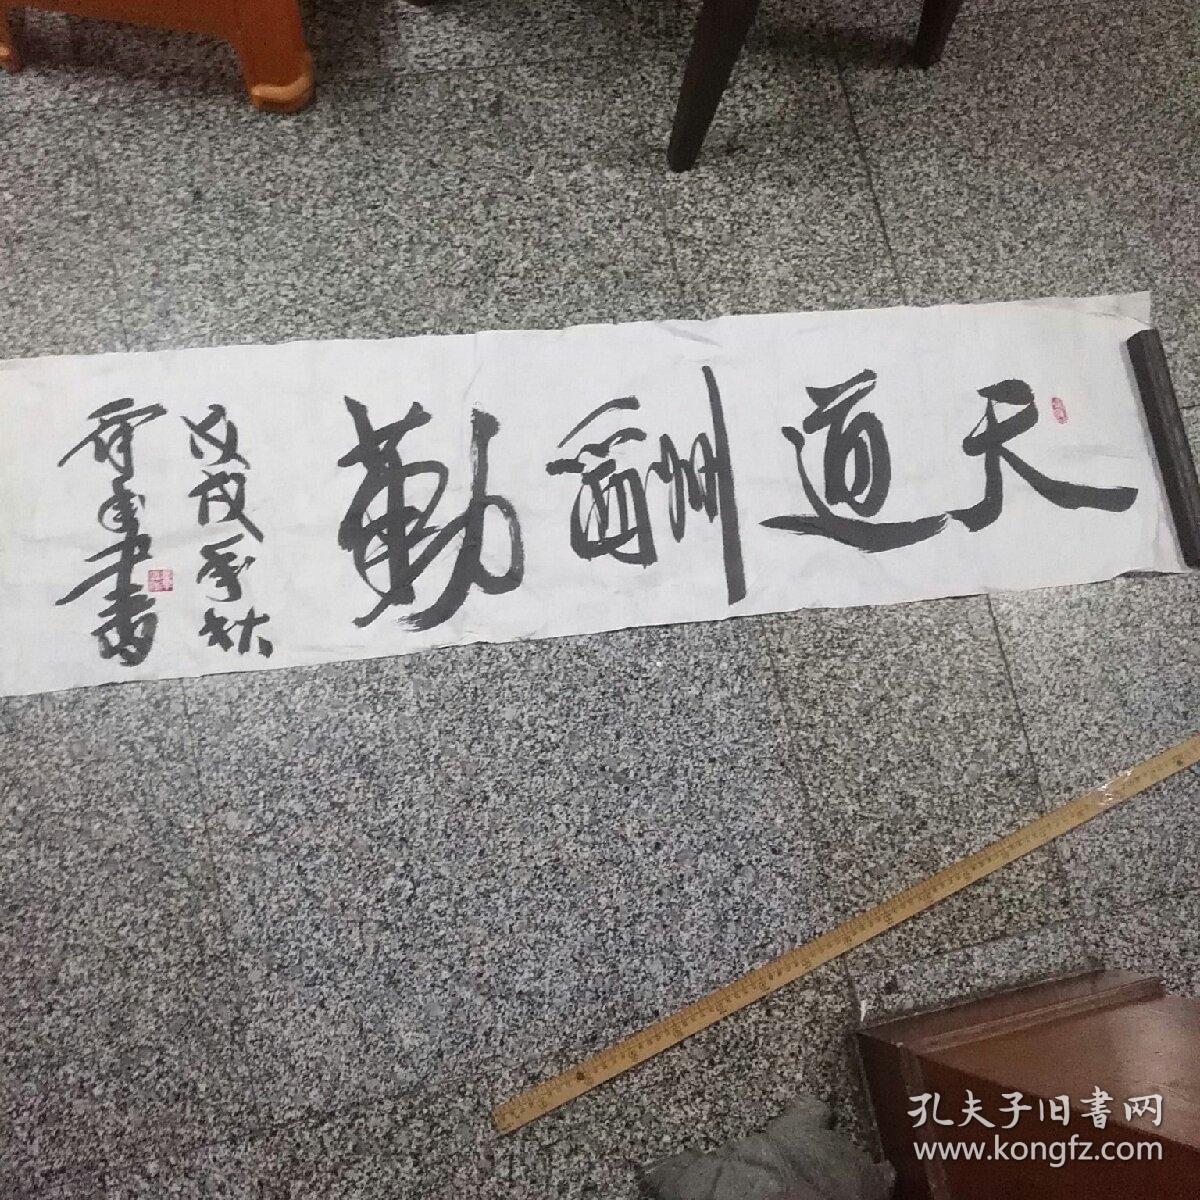 天道酬勤
戊戌季秋
孔夫子旧書网
www.kongfz.com